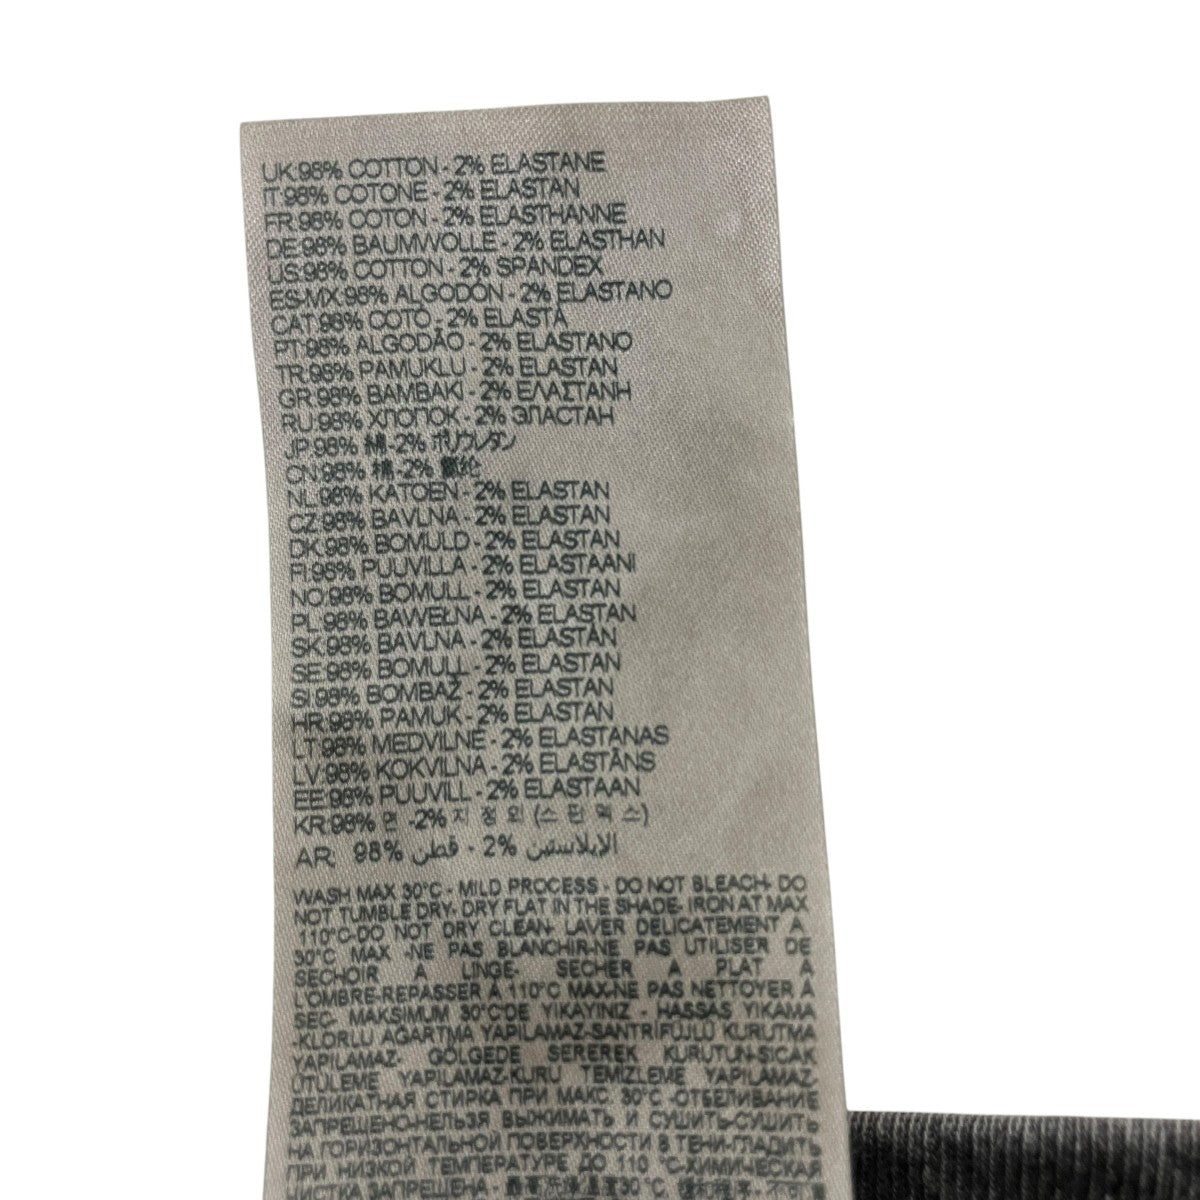 UK:98% COTTON - 2% ELASTANE
IT:98% COTONE - 2% ELASTAN
FR:98% COTON - 2% ELASTHANNE
DE:98% BAUMWOLLE - 2% ELASTHAN
US:98% COTTON - 2% SPANDEX
ES-MX:98% ALGODÓN - 2% ELASTANO
CAT:98% COTÓ - 2% ELASTÀ
PT:98% ALGODÃO - 2% ELASTANO
TR:98% PAMUKLU - 2% ELASTAN
GR:98% BAMBAKI - 2% ΕΛΑΣΤΑΝΗ
RU:98% ХЛОПОК - 2% ЭЛАСТАН
JP:98% 綿 -2% ポリウレタン
CN:98% 棉 -2%
NL:98% KATOEN - 2% ELASTAN
CZ:98% BAVLNA - 2% ELASTAN
DK:98% BOMULD - 2% ELASTAN
FI:98% PUUVILLA - 2% ELASTAANI
NO:98% BOMULL - 2% ELASTAN
PL:98% BAWEŁNA - 2% ELASTAN
SK:98% BAVLNA - 2% ELASTAN
SE:98% BOMULL - 2% ELASTAN
SI:98% BOMBAŽ - 2% ELASTAN
HR:98% PAMUK - 2% ELASTAN
LT:98% MEDVILNĖ - 2% ELASTANAS
LV:98% KOKVILNA - 2% ELASTĀNS
EE:98% PUUVILL - 2% ELASTAAN
KR:98% 면 -2%
AR: 98% قطن - 2% الإيلاستين
WASH MAX 30°C - MILD PROCESS - DO NOT BLEACH- DO
NOT TUMBLE DRY- DRY FLAT IN THE SHADE- IRON AT MAX
110°C-DO NOT DRY CLEAN- LAVER DÉLICATEMENT À
30°C MAX -NE PAS BLANCHIR-NE PAS UTILISER DE
SECHOIR A LINGE- SECHER A PLAT A
L'OMBRE-REPASSER À 110°C MAX-NE PAS NETTOYER À
SEC- MAKSIMUM 30°C'DE YIKAYINIZ - HASSAS YIKAMA
-KLORLU AĞARTMA YAPILAMAZ-SANTRİFÜJLÜ KURUTMA
YAPILAMAZ- GÖLGEDE SEREREK KURUTUN-SICAK
ÜTÜLEME YAPILAMAZ-KURU TEMİZLEME YAPILAMAZ-
ДЕЛИКАТНАЯ СТИРКА ПРИ МАКС. 30°C -ОТБЕЛИВАНИЕ
ЗАПРЕЩЕНО-НЕЛЬЗЯ ВЫЖИМАТЬ И СУШИТЬ-СУШИТЬ
НА ГОРИЗОНТАЛЬНОЙ ПОВЕРХНОСТИ В ТЕНИ-ГЛАДИТЬ
ПРИ НИЗКОЙ ТЕМПЕРАТУРЕ ДО 110 °C-ХИМИЧЕСКАЯ
ЧИСТКА ЗАПРЕЩЕНА - 30°C